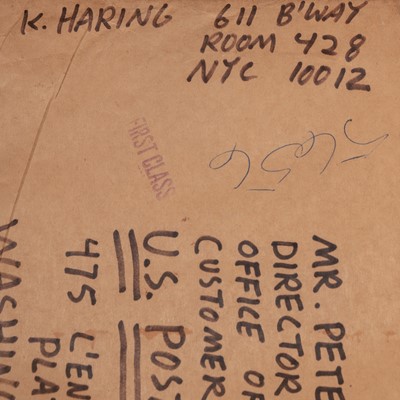 K. HARING 611 B'WAY
ROOM 428
NYC 10012
FIRST CLASS
5656
MR. PETE
DIRECTOR
OFFICE OF
CUSTOMER
U.S. POST
475 L'EN
PLA
WASHING